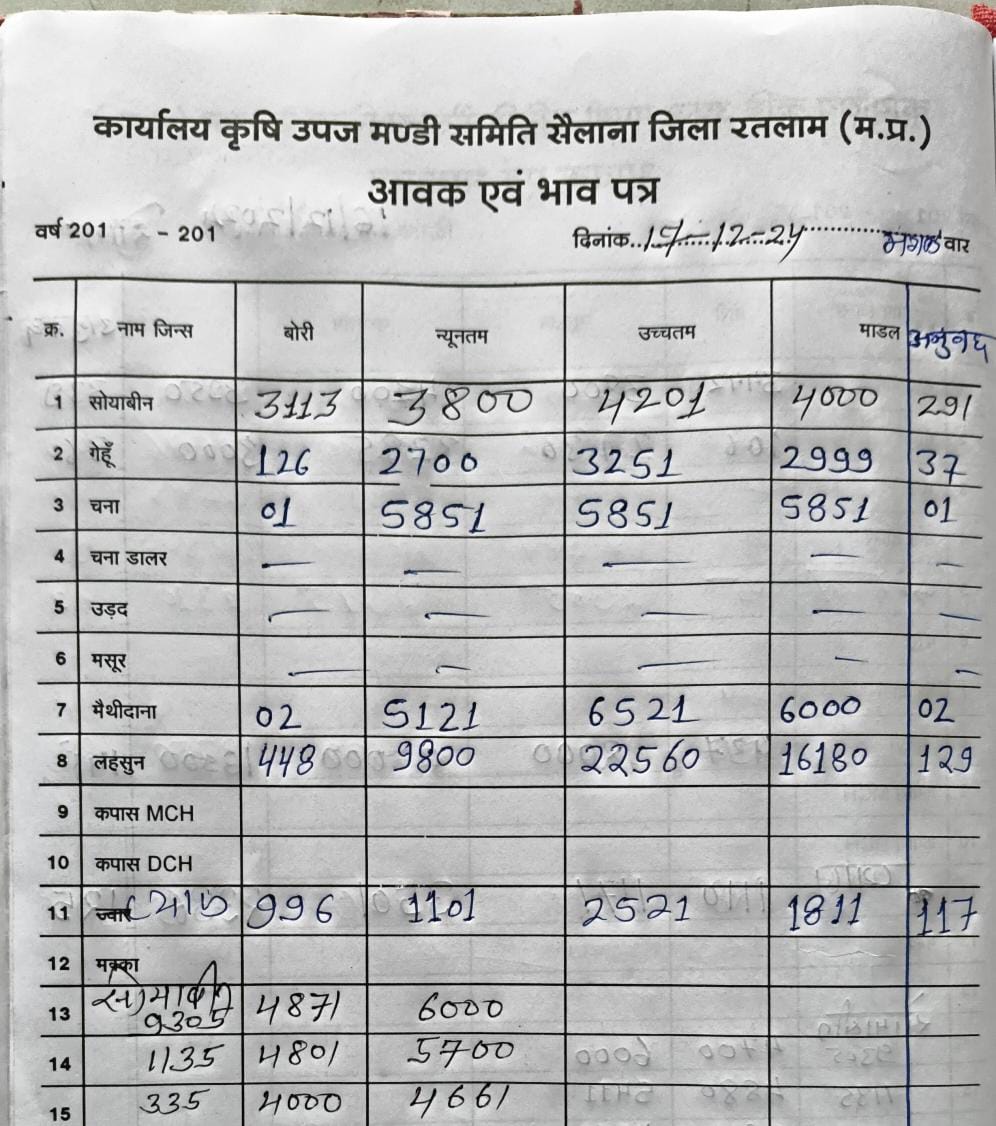 कार्यालय कृषि उपज मण्डी समिति सैलाना जिला रतलाम (म.प्र.)
आवक एवं भाव पत्र
वर्ष 201 - 201 दिनांक..17-12-24 मंगलवार
क्र. नाम जिन्स बोरी न्यूनतम उच्चतम माडल अनुबंध
1 सोयाबीन 3113 3800 4201 4000 291
2 गेहूँ 126 2700 3251 2999 37
3 चना 01 5851 5851 5851 01
4 चना डालर — — — — —
5 उड़द — — — — —
6 मसूर — — — — —
7 मैथीदाना 02 5121 6521 6000 02
8 लहसुन 448 9800 22560 16180 129
9 कपास MCH
10 कपास DCH
11 ज्वार प्याज 996 1101 2521 1811 117
12 मक्का
13 9305 4871 6000
14 1135 4801 5700
15 335 4000 4661